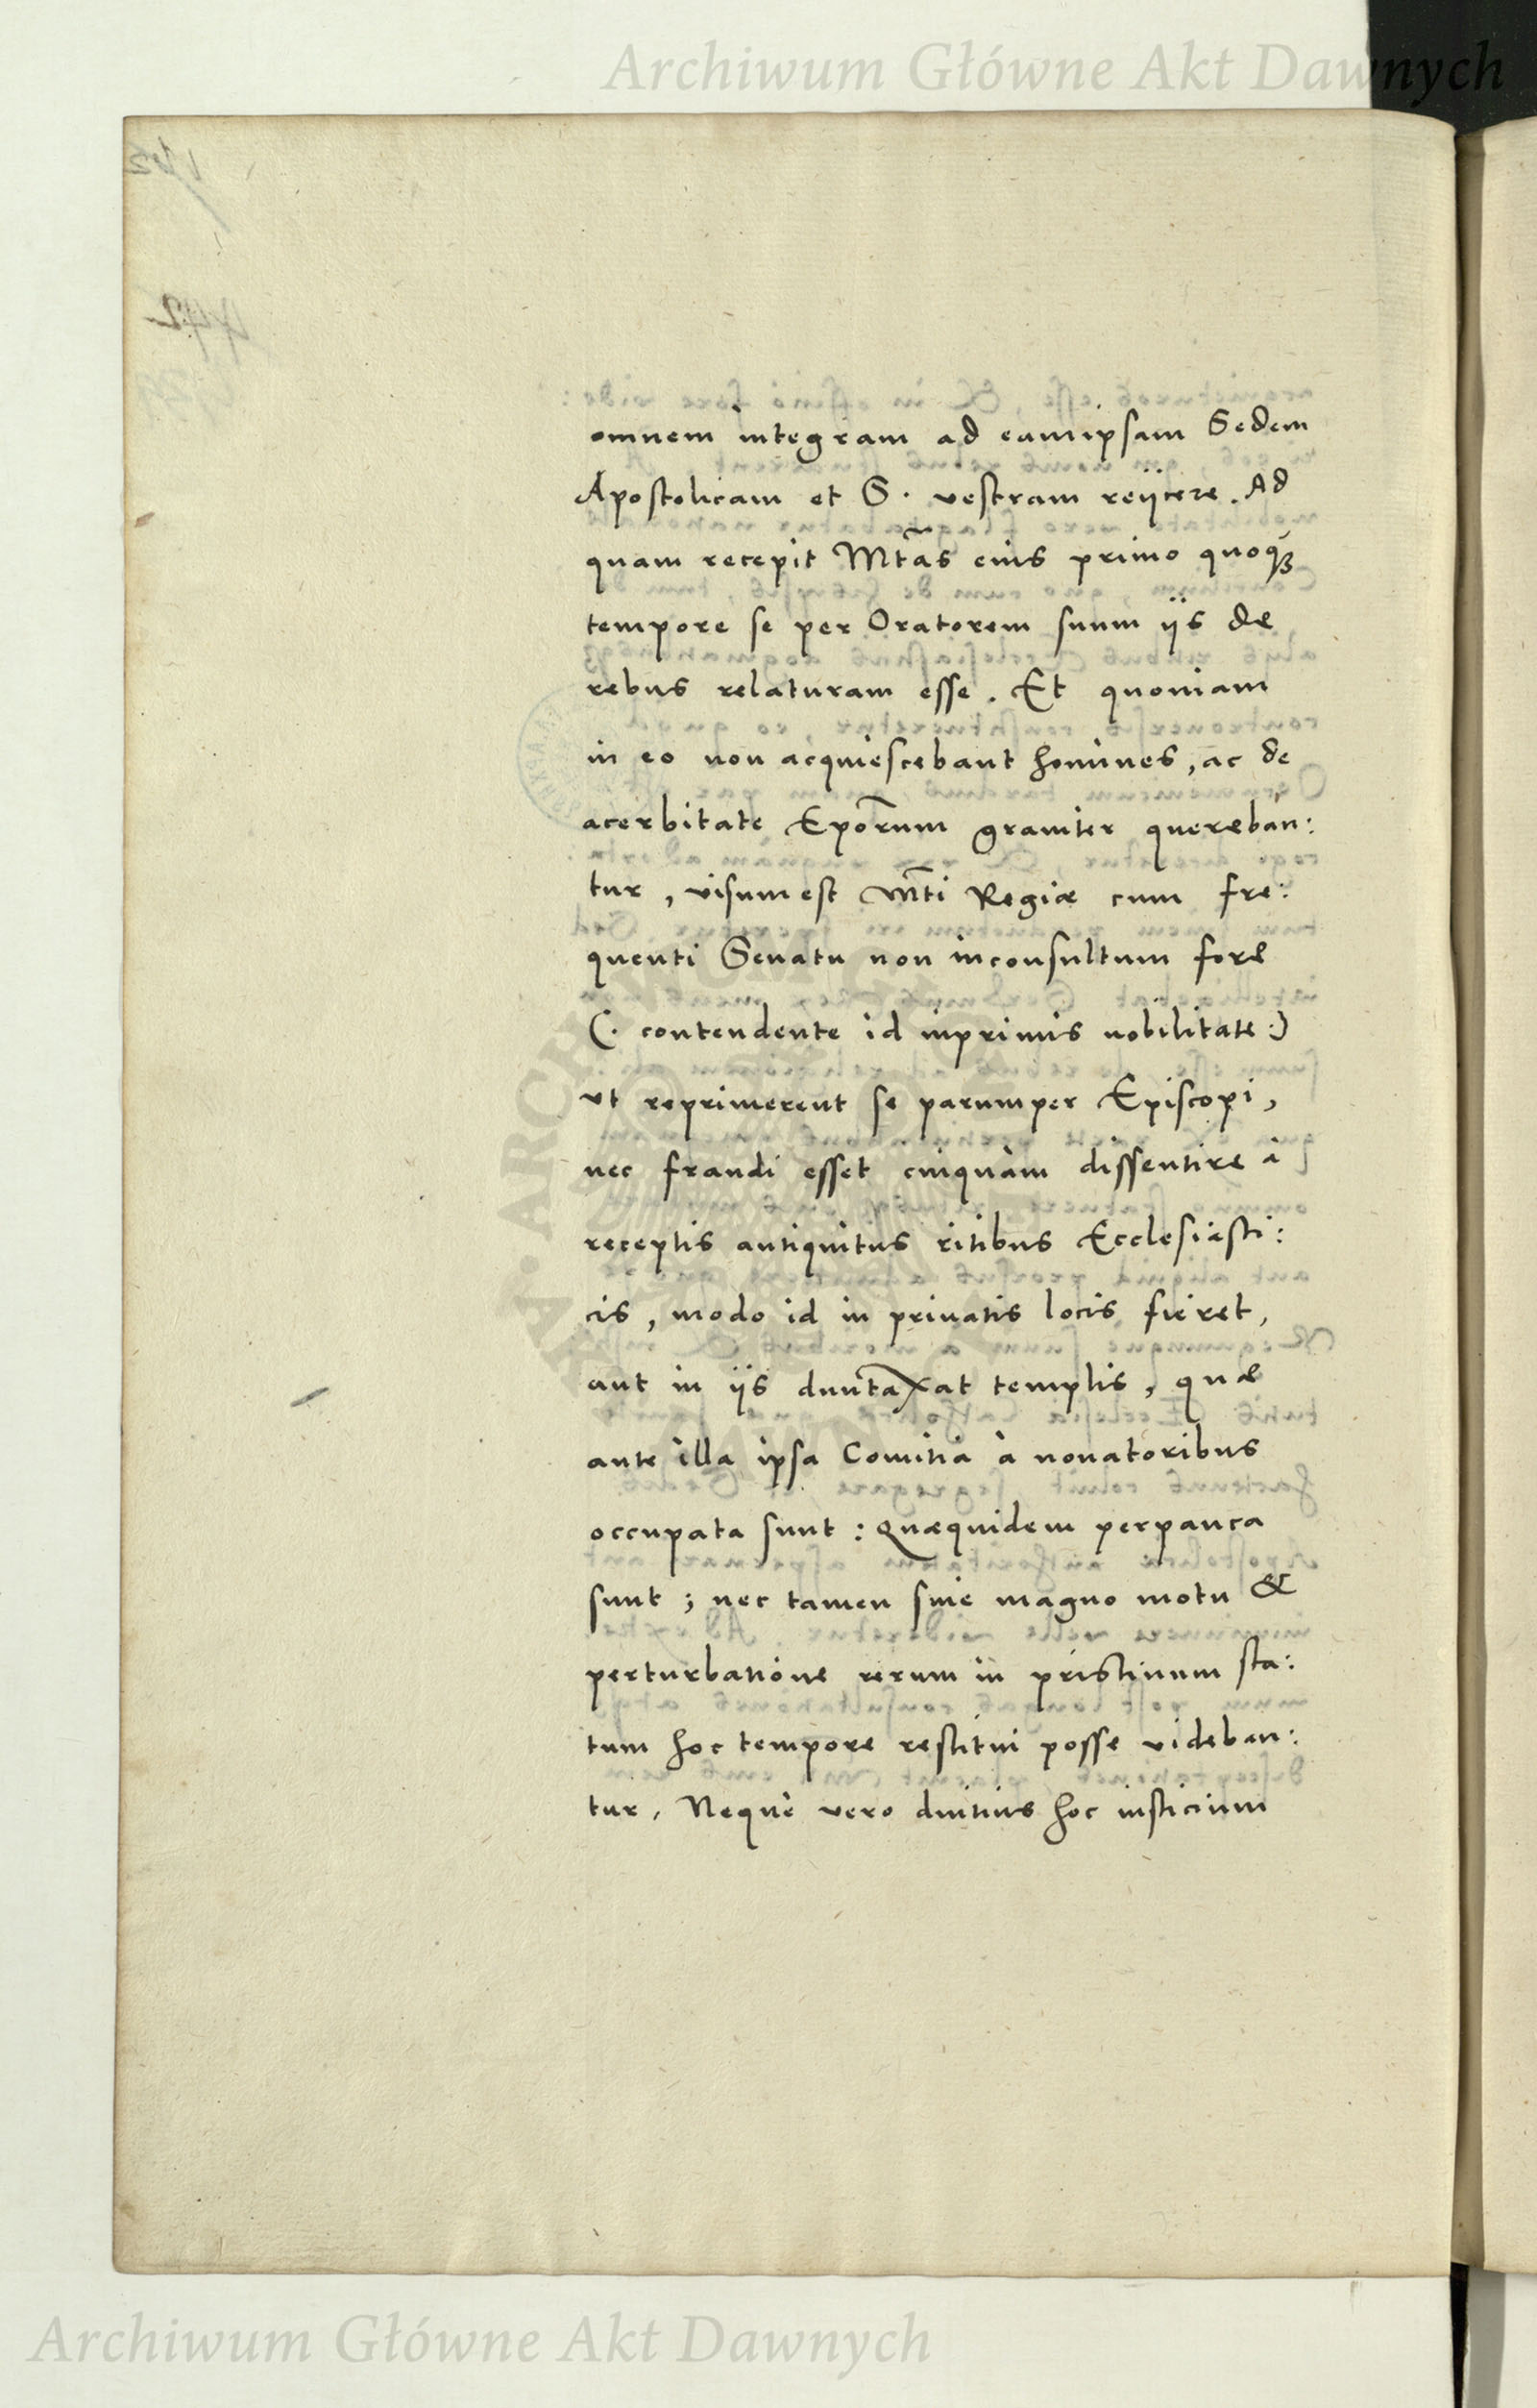 Archiwum Główne Akt Dawnych
omnem integram ad eamipsam Sedem
Apostolicam et S. vestram reijcere. Ad
quam recepit Mt̃as eius primo quoqꝫ
tempore se per Oratorem suum ijs de
rebus relaturam esse. Et quoniam
in eo non acquiescebant homines, ac de
acerbitate Epõrum grauiter quereban:
tur, visum est Mt̃i Regiæ cum fre:
quenti Senatu non inconsultum fore
(. contendente id inprimis nobilitate :)
vt reprimerent se parumper Episcopi,
nec fraudi esset cuiquàm dissentire à
receptis antiquitus ritibus Ecclesiasti:
cis, modo id in priuatis locis fieret,
aut in ijs duntaxat templis, quæ
ante illa ipsa Comitia à nouatoribus
occupata sunt: Quæquidem perpauca
sunt; nec tamen sine magno motu &
perturbatione rerum in pristinum sta:
tum hoc tempore restitui posse videban:
tur, Neque vero diutius hoc iusticium
Archiwum Główne Akt Dawnych